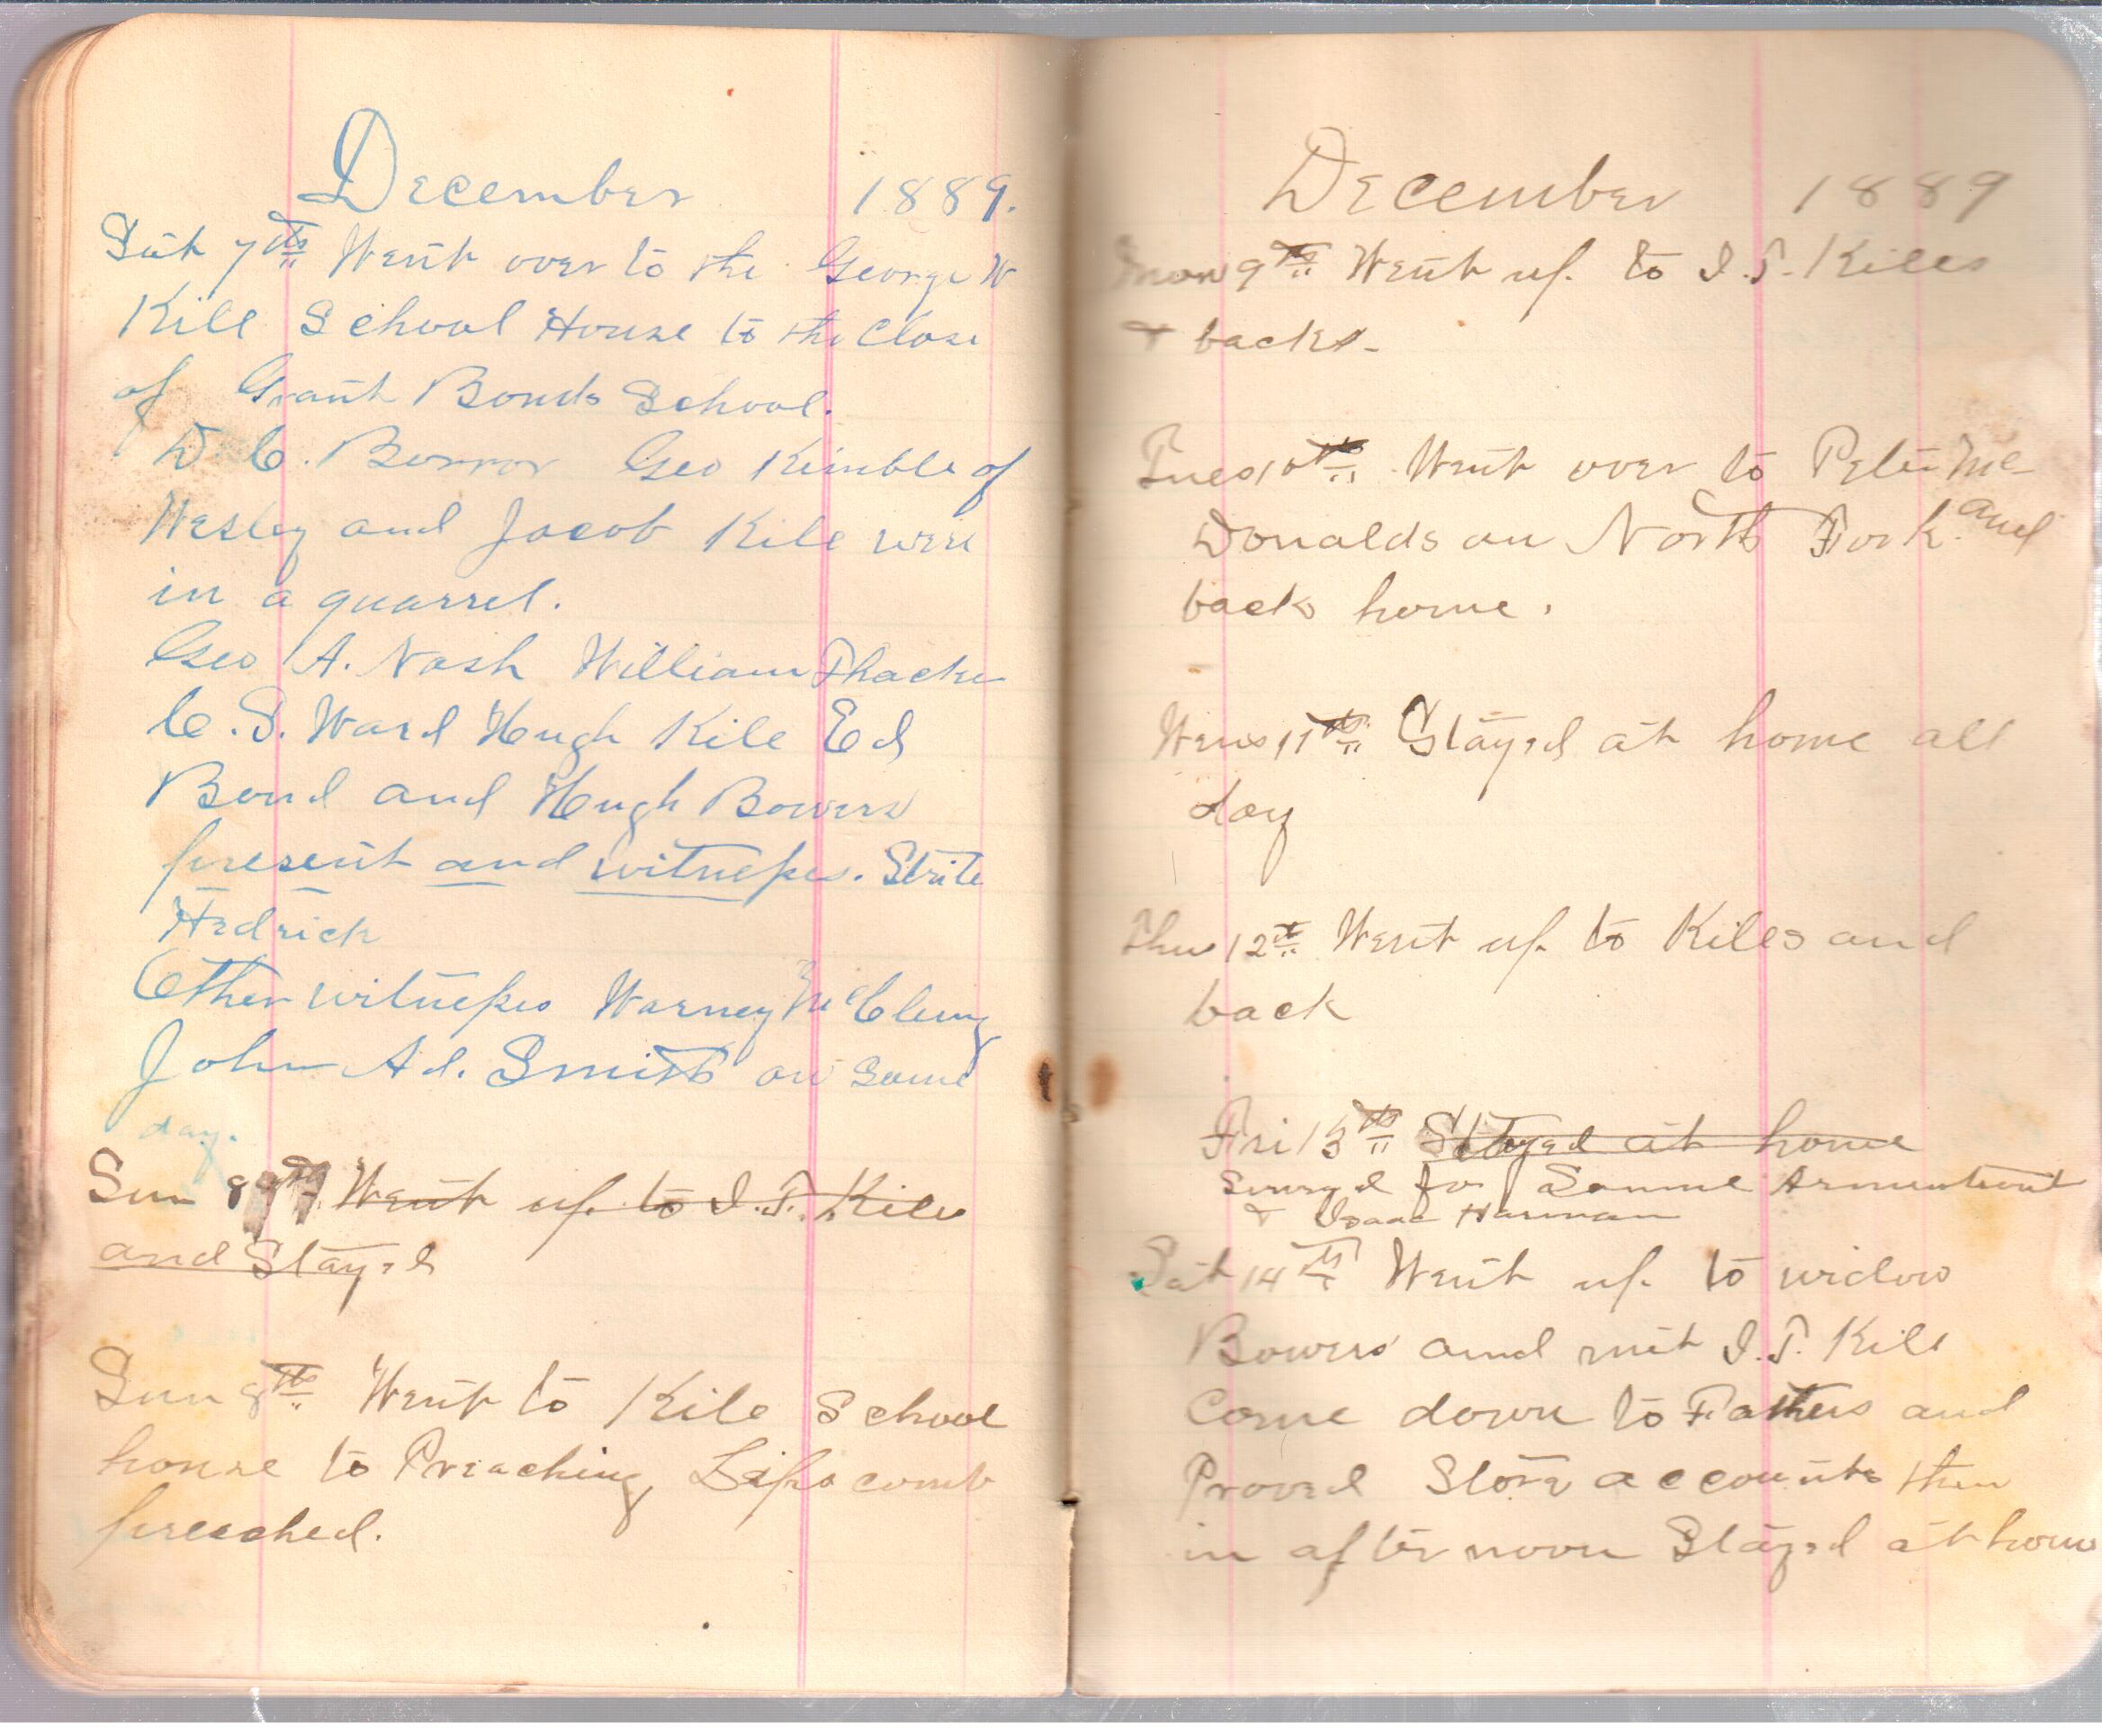 December 1889.
Sat 7th Went over to the George W
Kile School House to the Close
of Grant Bonds School.
D. C. Borror Geo Kimble of
Wesley and Jacob Kile were
in a quarrel.
Geo A. Nash William Thacker
C. S. Ward Hugh Kile Ed
Bond and Hugh Bowers
present and witnesses. Strite
Hedrick
Other witnesses Warney McClung
John Ad. Smith on same
day.
Sun 8th Went up to I. T. Kiles
and Stayed
Sun 8th Went to Kile School
house to Preaching Lipscomb
preached.
December 1889
Mon 9th Went up to I. T. Kiles
& back.
Tues 10th Went over to Peter Mc
Donalds on North Fork and
back home.
Wens 11th Stayed at home all
day
Thu 12th Went up to Kiles and
back
Fri 13th Stayed at home
for Armentrout
& Isaac Harman
Sat 14th Went up to widow
Bowers and met I. T. Kile
Come down to Fathers and
Proved Store accounts then
in afternoon Stayed at home